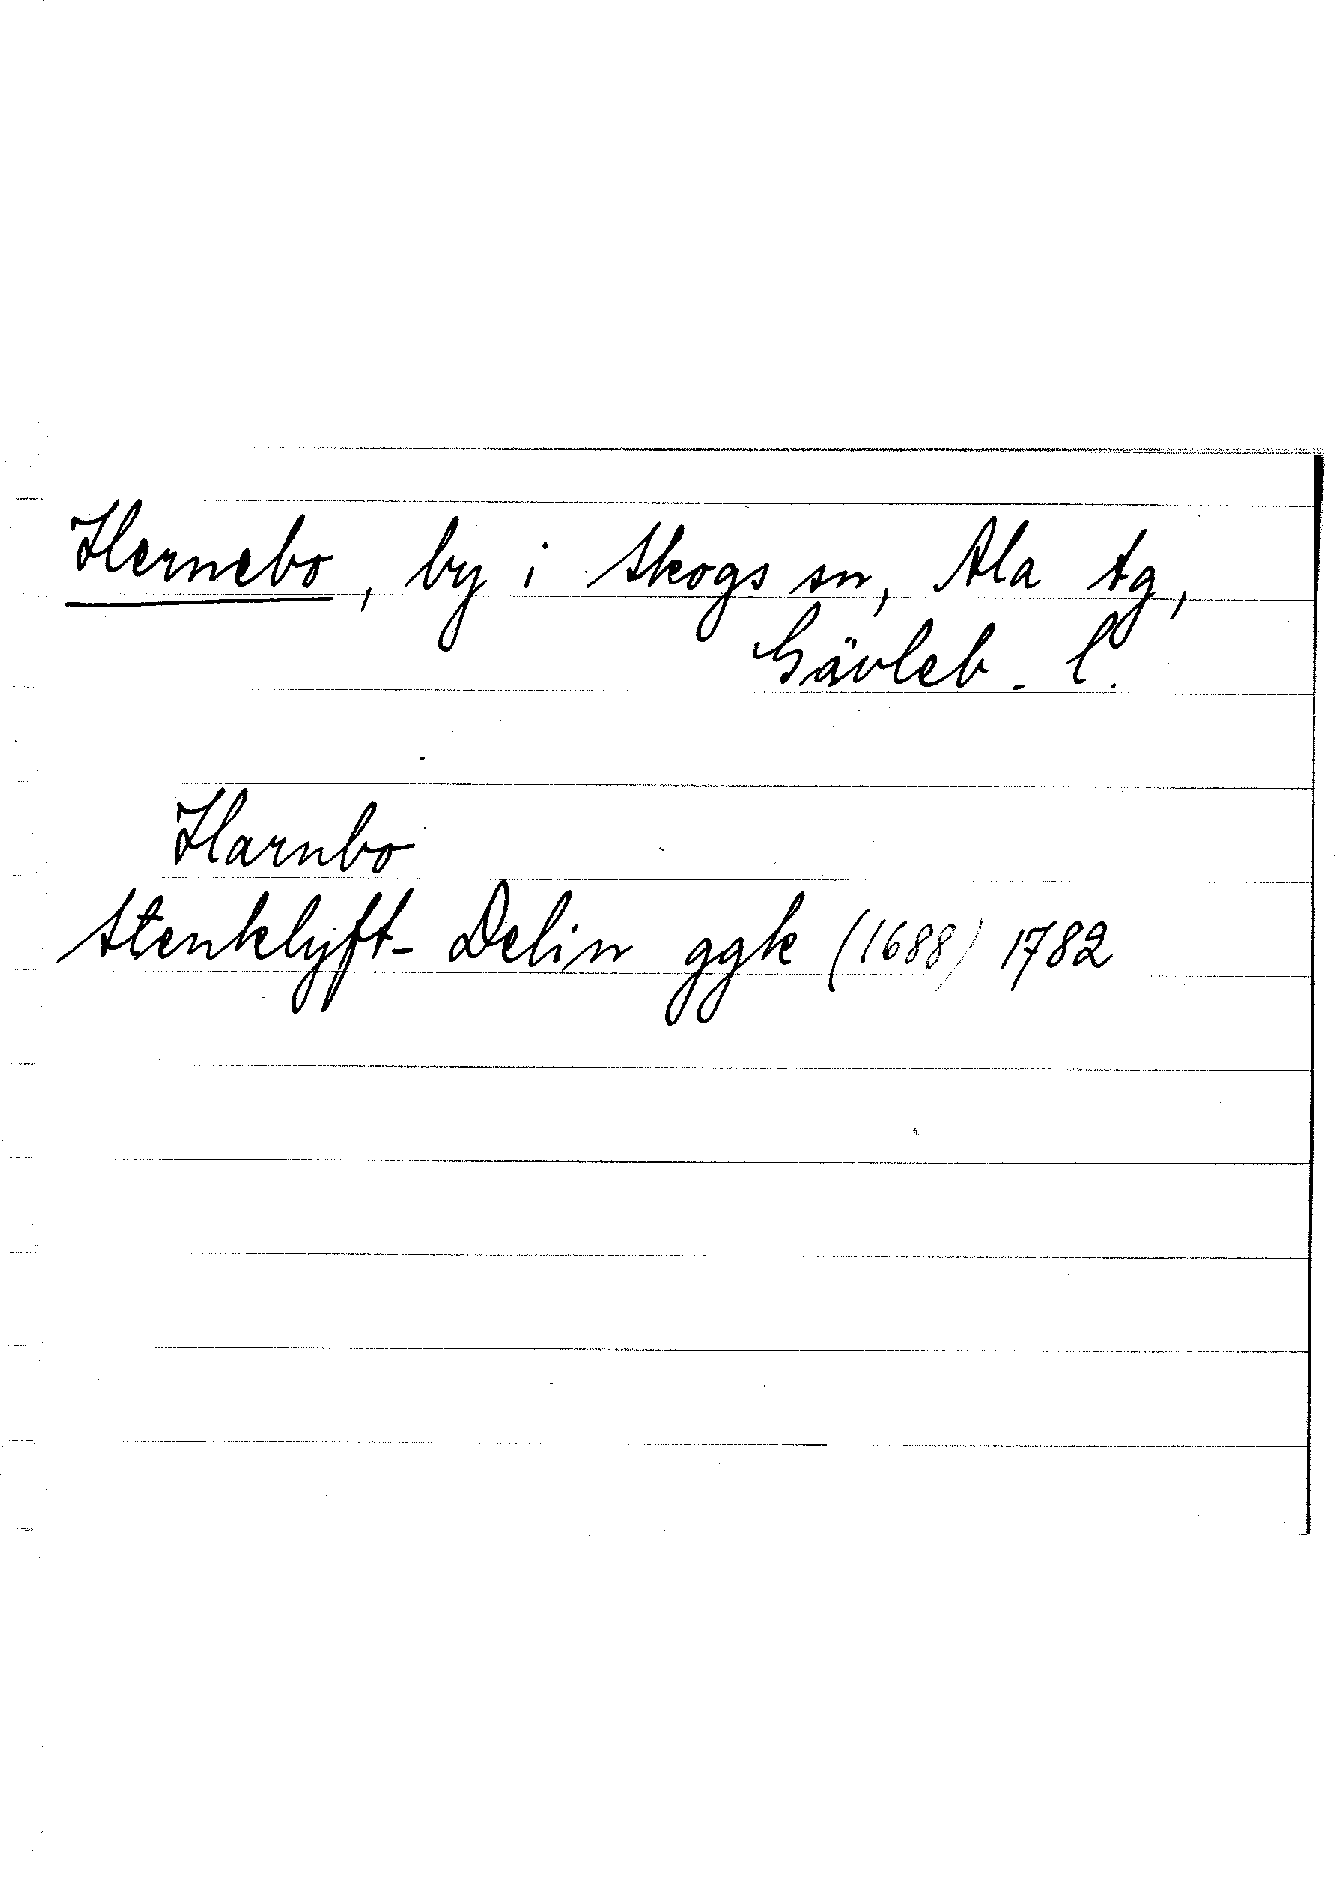 Hernebo, by i Skogs sn, Ala tg,
Gävleb. l.
Harnbo
Stenklyft- Delin ggk (1688) 1782